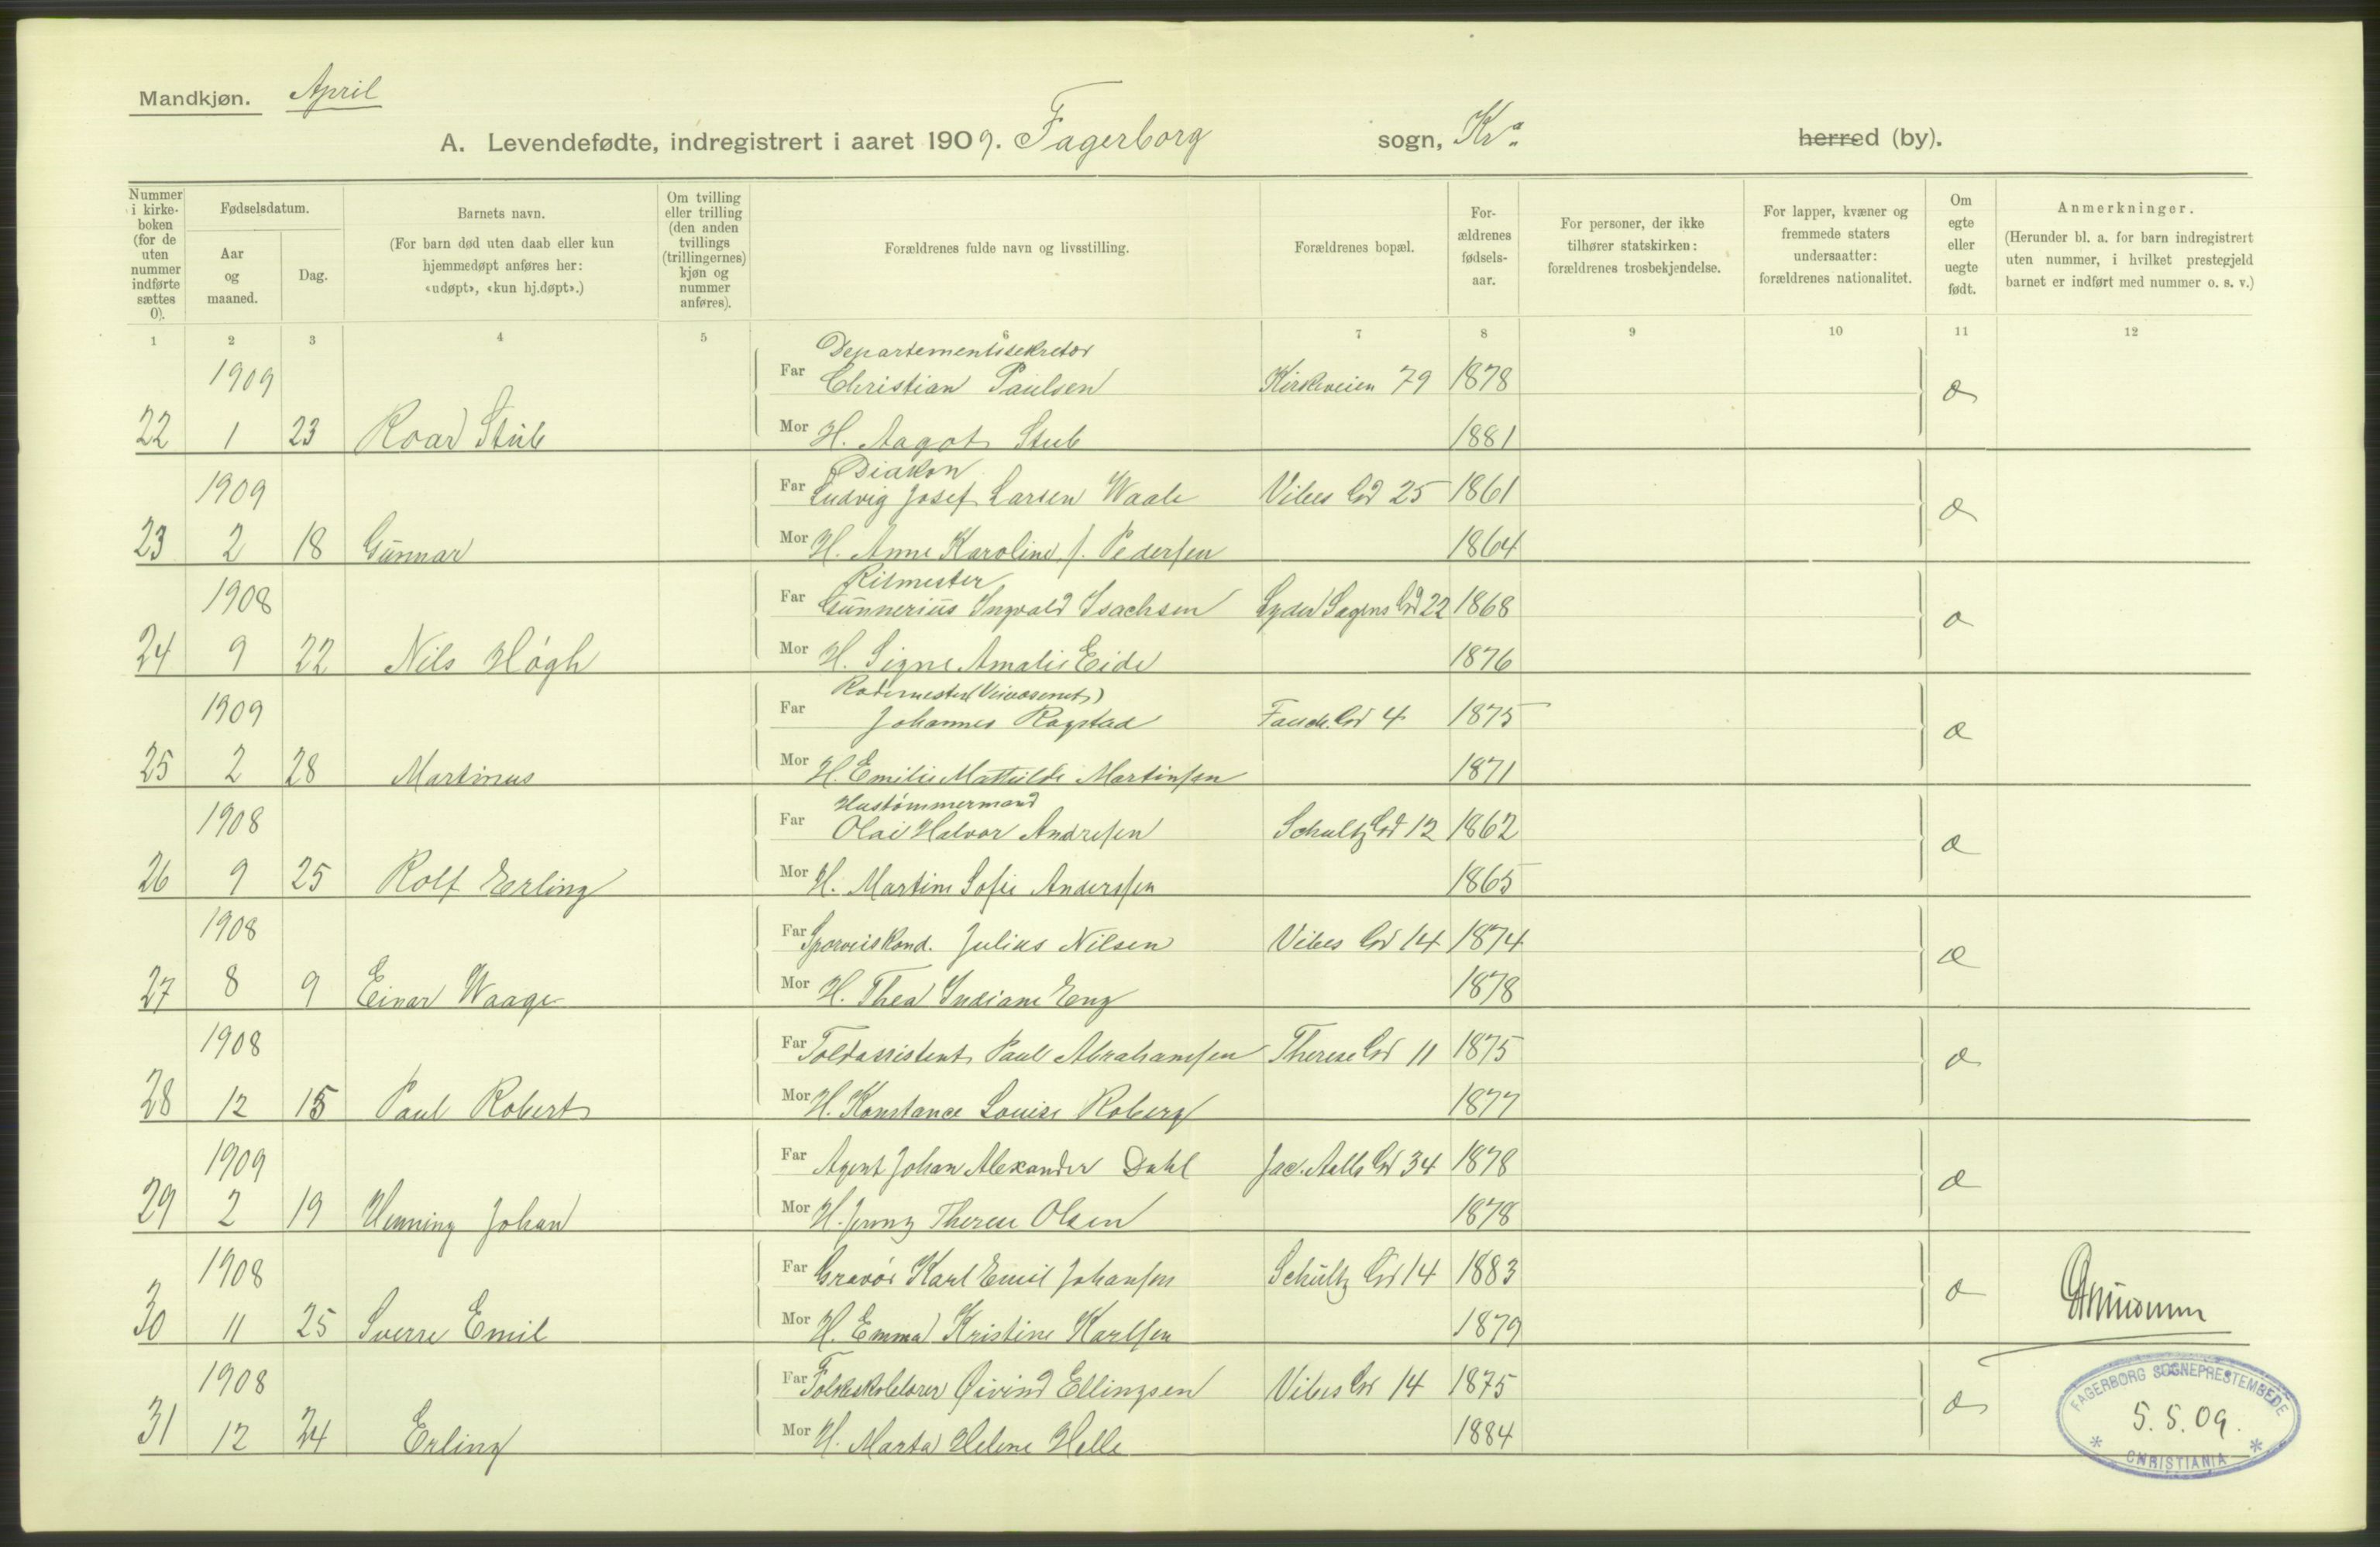 Mandkjøn. April
A. Levendefødte, indregistrert i aaret 1909. Fagerborg sogn, Kra. herred (by).
Nummer i kirke-boken (for de uten nummer indførte sættes 0).
Fødselsdatum.
Aar og maaned.
Dag.
Barnets navn.
(For barn død uten daab eller kun hjemmedøpt anføres her: «udøpt», «kun hj.døpt».)
Om tvilling eller trilling (den anden tvillings (trillingernes) kjøn og nummer anføres).
Forældrenes fulde navn og livsstilling.
Forældrenes bopæl.
For-ældrenes fødsels-aar.
For personer, der ikke tilhører statskirken: forældrenes trosbekjendelse.
For lapper, kvæner og fremmede staters undersaatter: forældrenes nationalitet.
Om egte eller uegte født.
Anmerkninger.
(Herunder bl. a. for barn indregistrert uten nummer, i hvilket prestegjeld barnet er indført med nummer o. s. v.)
1 2 3 4 5 6 7 8 9 10 11 12
Departementssekretær
1909 Far Christian Paulsen Kirkeveien 79 1878
22 1 23 Roar Stub Mor H. Aagot Stub 1881 æ
Diakon
1909 Far Ludvig Josef Larsen Waale Vibes Gd 25 1861
23 2 18 Gunnar Mor H. Anne Karoline f. Pedersen 1864 æ
Ritmester
1908 Far Gunnerius Ingvald Isachsen Lyder Sagens Gd 22 1868
24 9 22 Nils Høgh Mor H. Signe Amalie Eide 1876 æ
Rodemester (Veivæsenet)
1909 Far Johannes Rogstad Fauch. Gd 4 1875
25 2 28 Martinus Mor H. Emilie Mathilde Martinsen 1871 æ
Hustømmermand
1908 Far Olai Halvor Andresen Schultz Gd 12 1862
26 9 25 Rolf Erling Mor H. Martine Sofie Anderssen 1865 æ
1908 Far Sporveiskond. Julius Nilsen Vibes Gd 14 1874
27 8 9 Einar Waage Mor H. Thea Indiane Eng 1878 æ
1908 Far Toldassistent Paul Abrahamsen Therese Gd 11 1875
28 12 15 Paul Robert Mor H. Konstance Louise Roberg 1877 æ
1909 Far Agent Johan Alexander Dahl Jac. Aalls Gd 34 1878
29 2 19 Henning Johan Mor H. Jenny Therese Olsen 1878 æ
1908 Far Gravør Karl Emil Johansen Schultz Gd 14 1883
30 11 25 Sverre Emil Mor H. Emma Kristine Karlsen 1879 æ
1908 Far Folkeskolelærer Øivind Ellingsen Vibes Gd 14 1875
31 12 24 Erling Mor H. Marta Helene Helle 1884 æ
FAGERBORG SOGNEPRESTEMBEDE
5.5.09.
* CHRISTIANIA *